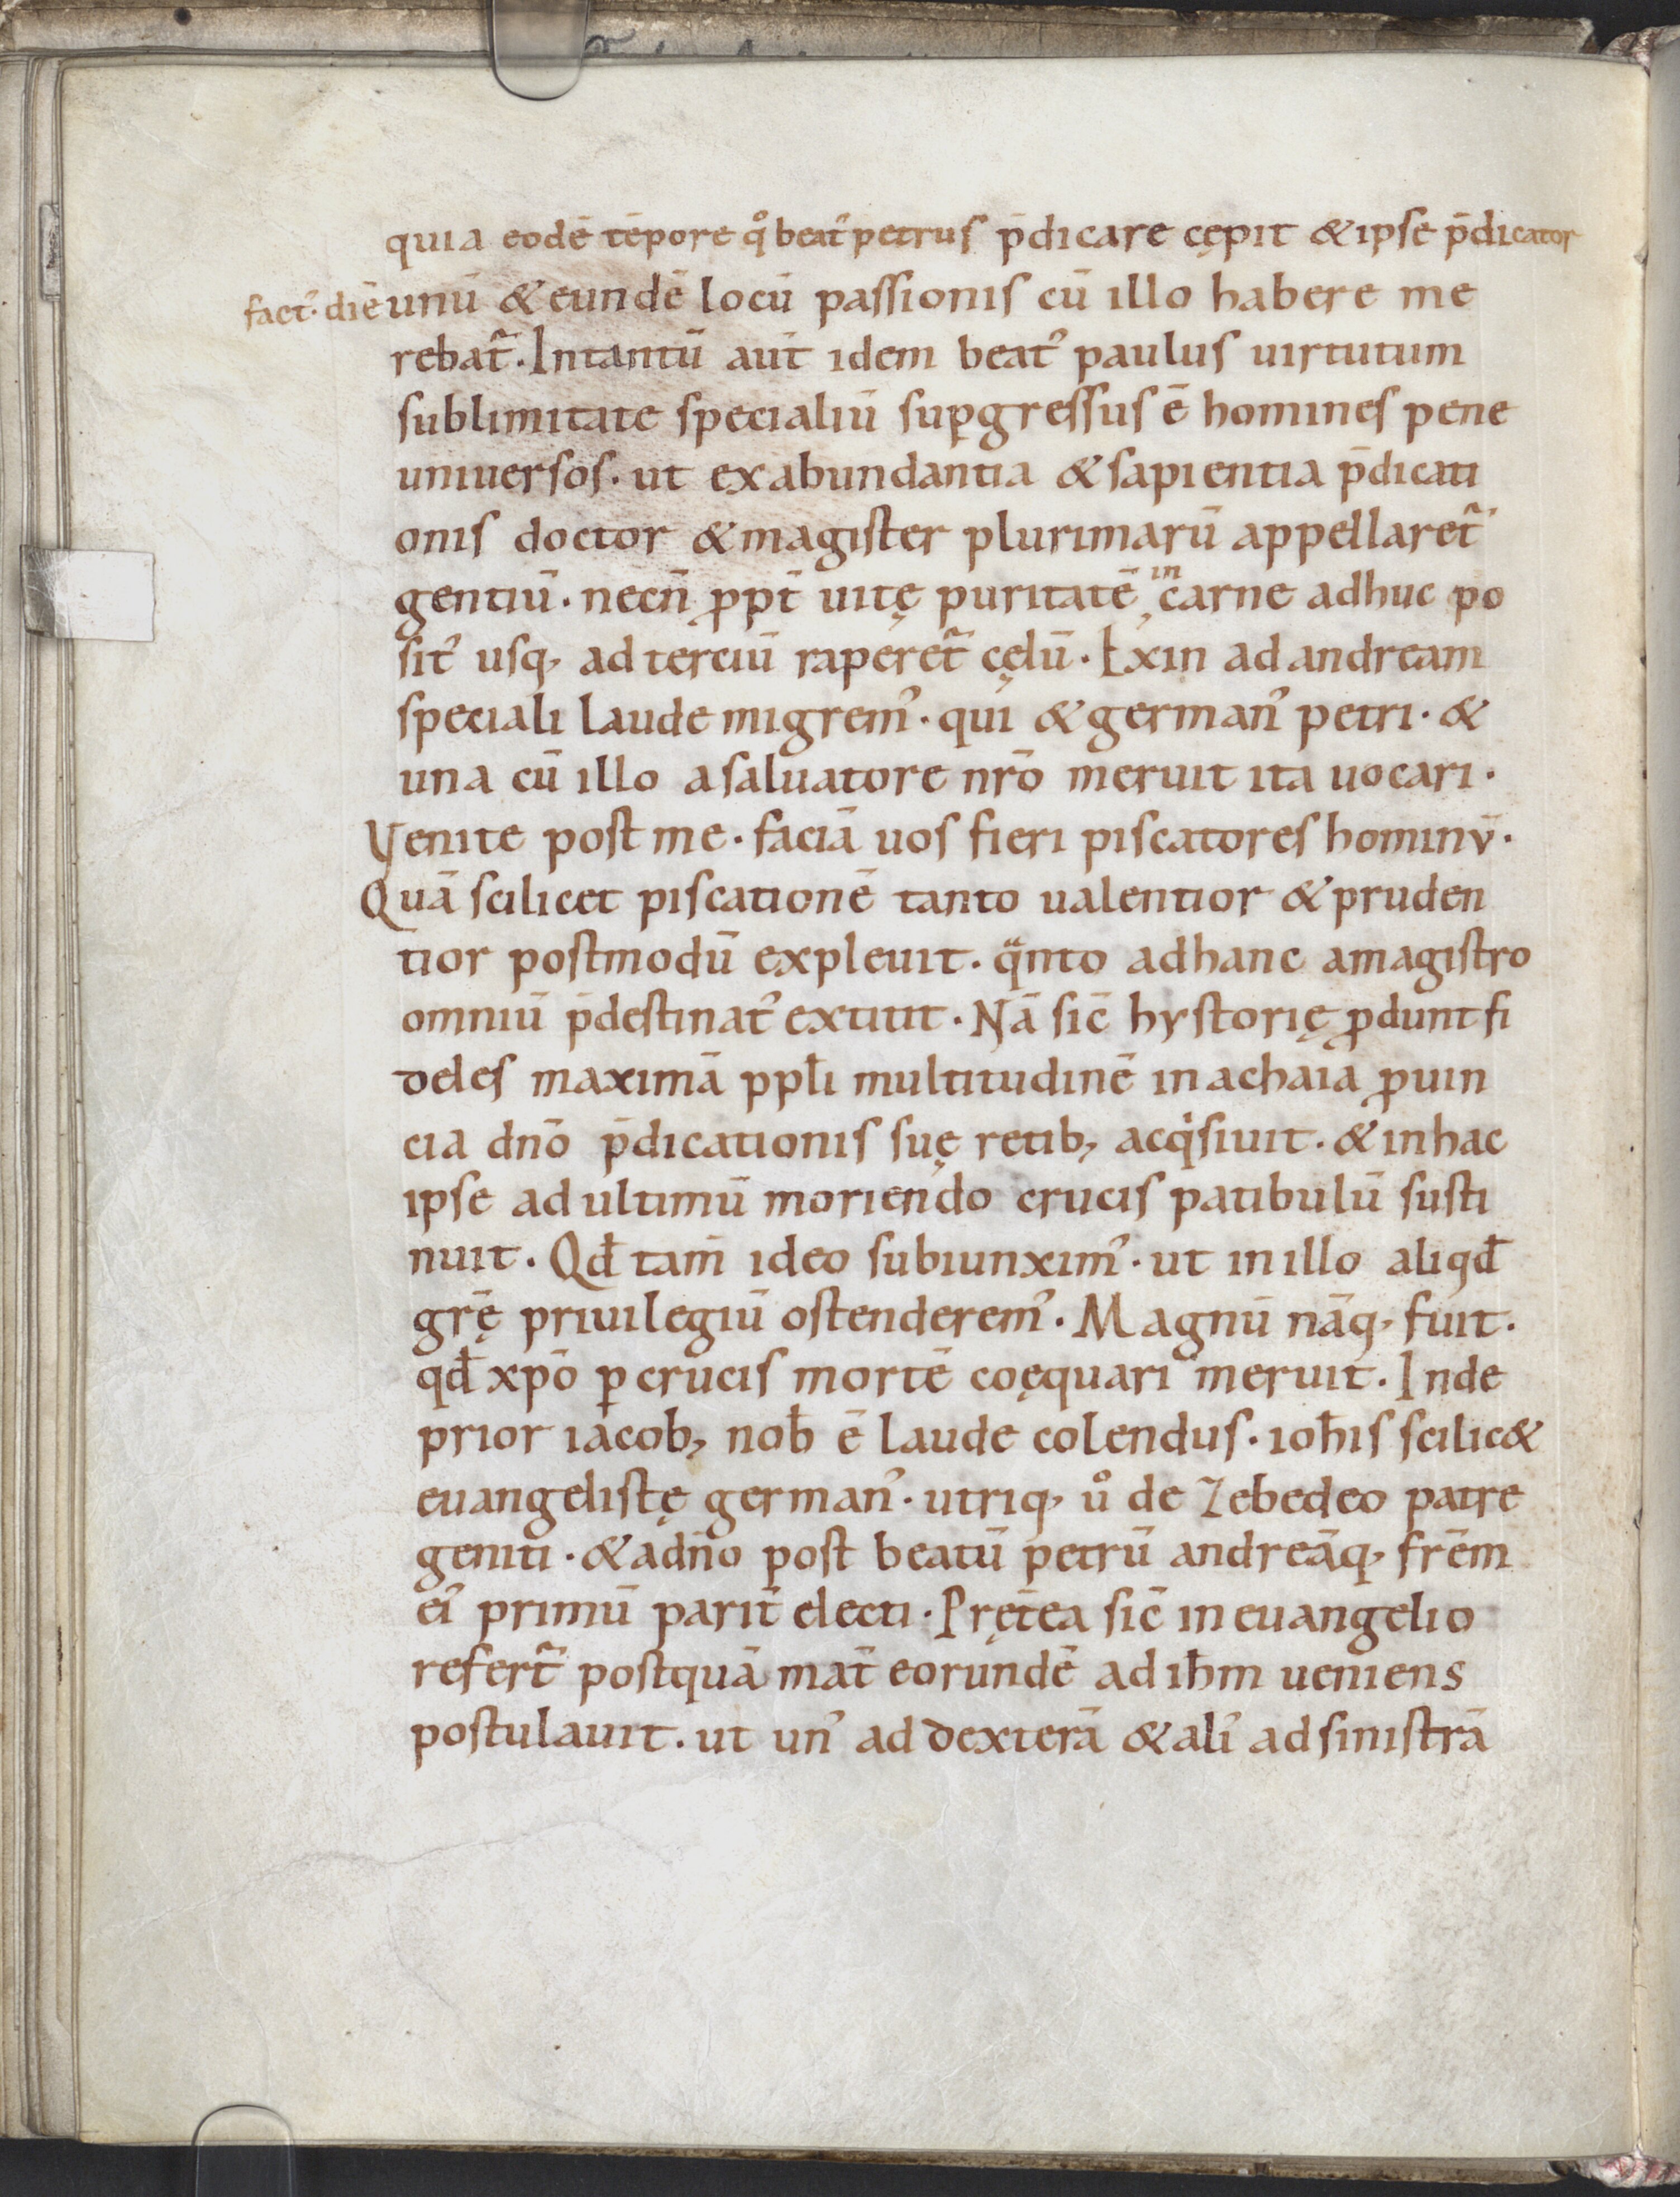 quia eodē tēpore qͦ beatꝰ petrus p̄dicare cępit & ipse p̄dicator
factꝰ· diē unū & eundē locū passionis cū illo habere me
rebat᷑. Intantū aut̄ idem beatꝰ paulus uirtutum
sublimitate specialiū sup̱gressus ē homines pene
uniuersos · ut ex abundantia & sapientia p̄dicati
onis doctor & magister plurimarū appellaret᷑
gentiū · necn̄ ꝓpt̄ uitę puritatē in carne adhuc po
sitꝰ usq, ad terciū raperet᷑ cęlū · Exin ad andream
speciali laude migremꝰ · qui & germanꝰ petri · &
una cū illo a saluatore nr̄o meruit ita uocari ·
Venite post me · faciā uos fieri piscatores hominv̄ ·
Quā scilicet piscationē tanto ualentior & pruden
tior postmodū expleuit · qᷓnto ad hanc a magistro
omniū p̄destinatꝰ extitit · Nā sic̄ hystorię ꝓdunt fi
deles maximā ppƚi multitudinē in achaia ꝓuin
cia dn̄o p̄dicationis suę retib; acqͥsiuit · & in hac
ipse ad ultimū moriendo crucis patibulū susti
nuit · Qđ tam̄ ideo subiunximꝰ · ut in illo aliqđ
gr̄ę priuilegiū ostenderemꝰ · Magnū nāq, fuit ·
qđ xp̄o ꝑ crucis mortē coęquari meruit · Inde
prior iacob; nob̄ ē laude colendus · ioħis scilic&
euangelistę germanꝰ · utriq, uͦ de Zebedeo patre
geniti · & a dn̄o post beatū petrū andreāq, fr̄em
eiꝰ primū parit̄ electi · Pręt̄ea sic̄ in euangelio
refert᷑ postquā mat̄ eorundē ad iħm ueniens
postulauit · ut unꝰ ad dexterā & aliꝰ ad sinistrā